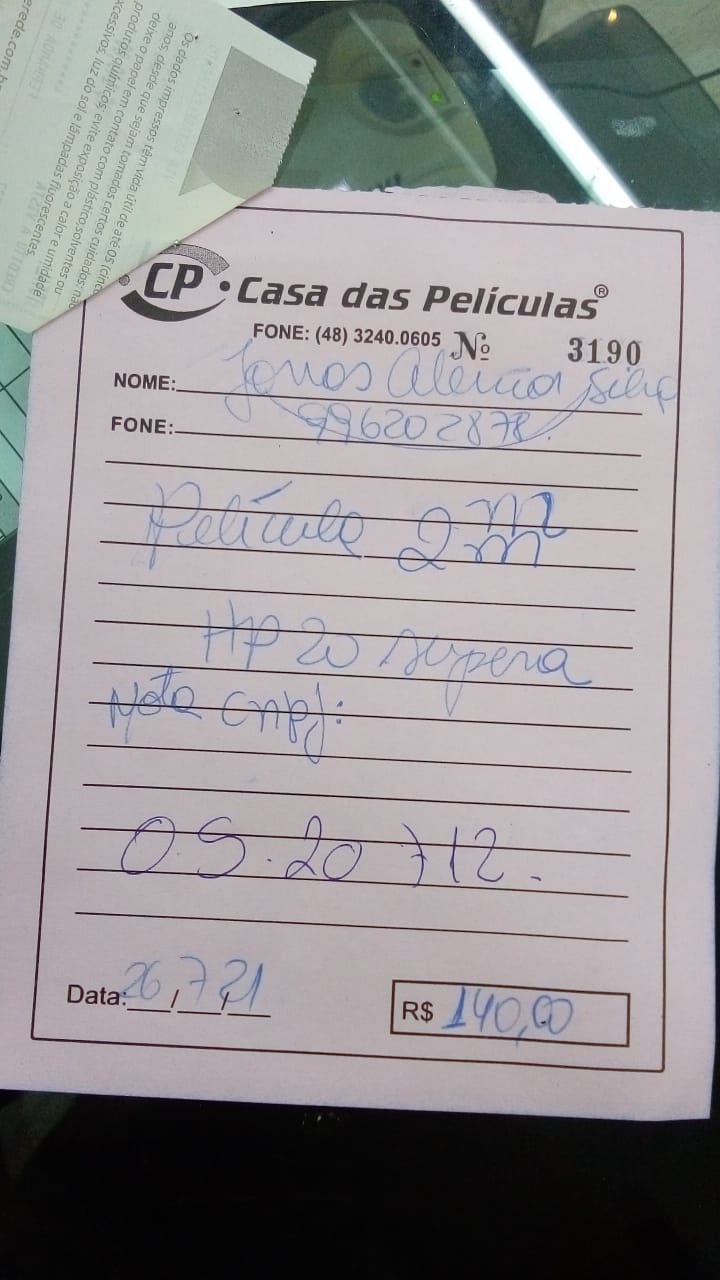 Os dados impressos têm vida útil de até 05 (cinc
anos, desde que sejam tomados certos cuidados: nã
deixe o papel em contato com plástico, solventes ou
produtos químicos; evite exposição a calor e umidade
xcessivos, luz do sol e lâmpadas fluorescentes.
erede.com.br
CP Casa das Películas®
FONE: (48) 3240.0605 Nº 3190
NOME: Jonas Silva
FONE: 996202878
Película 2m
m
HP 20 supera
Nota cnpj:
05.20 712.
Data: 26/7/21 R$ 140,00